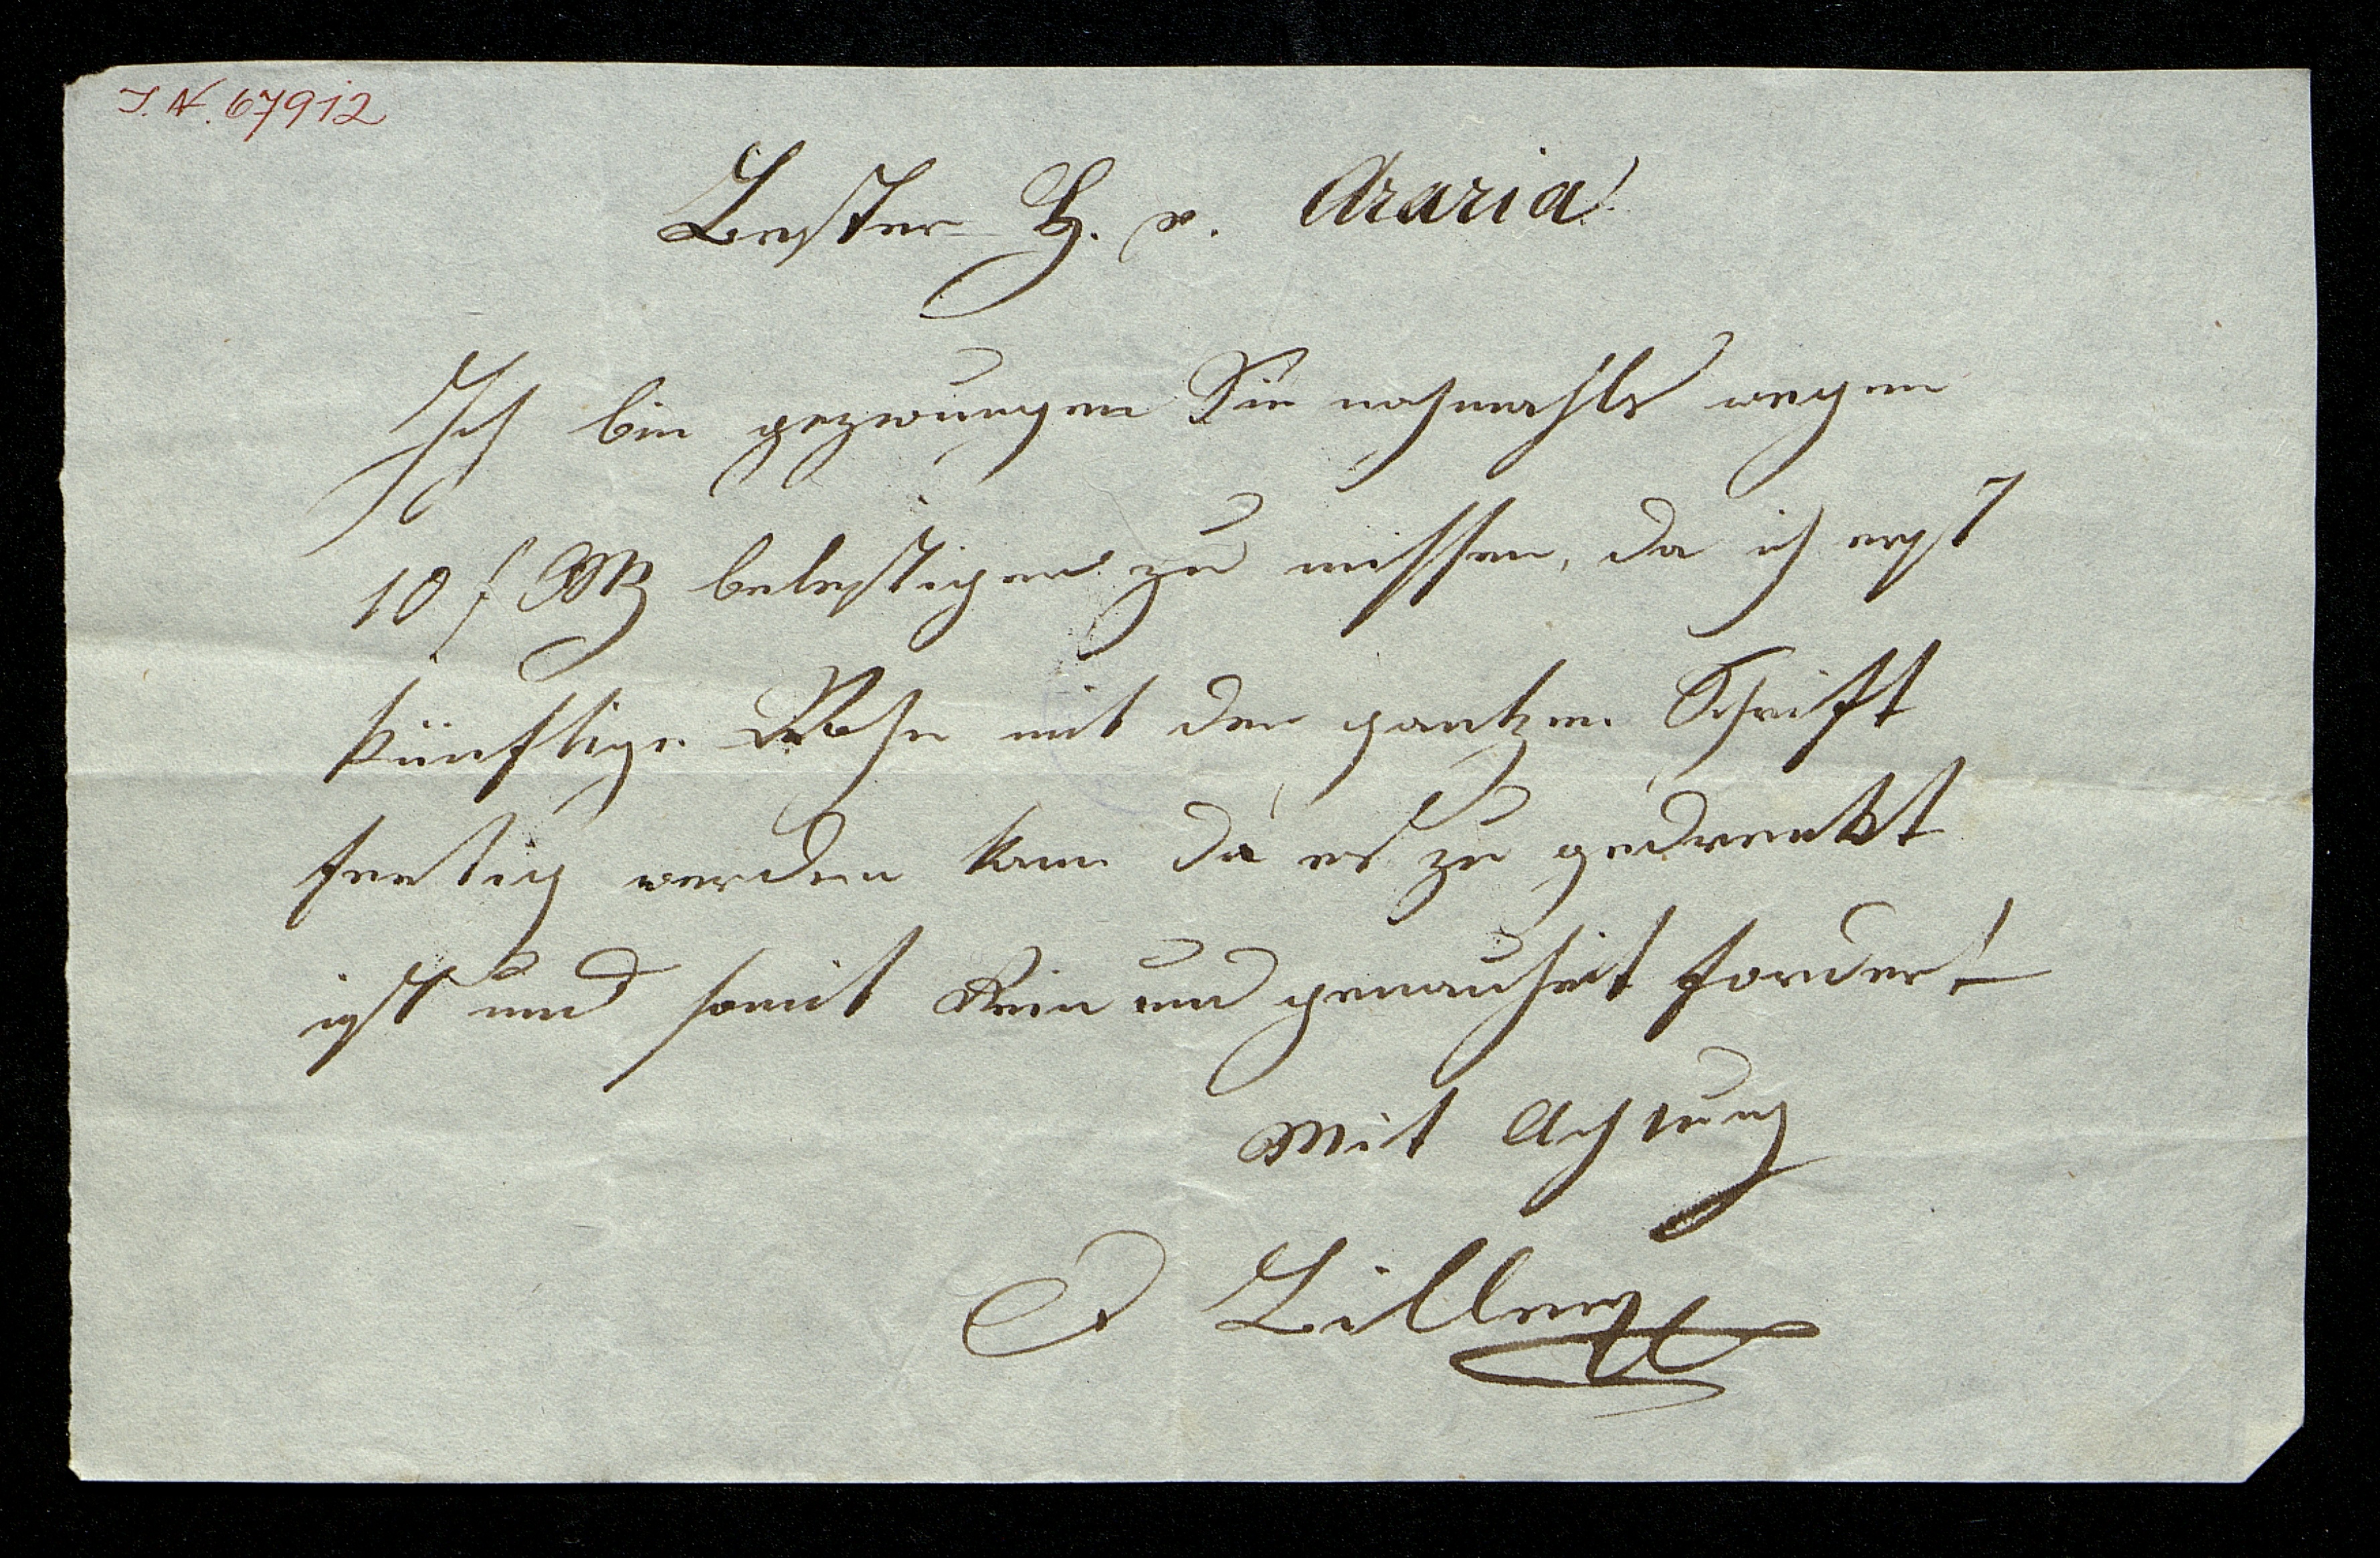 I. N. 67912
Bester H. v. Araria!
Ich bin gezwungen Sie nochmahls wegen
10 f CMz belestigen zu missen, da ich erst
künftige Woche mit der gantzen Schrift
fertig werden kann da es zu gedrenkt
ist und somit Rein und genauheit fordert
Mit Achtung